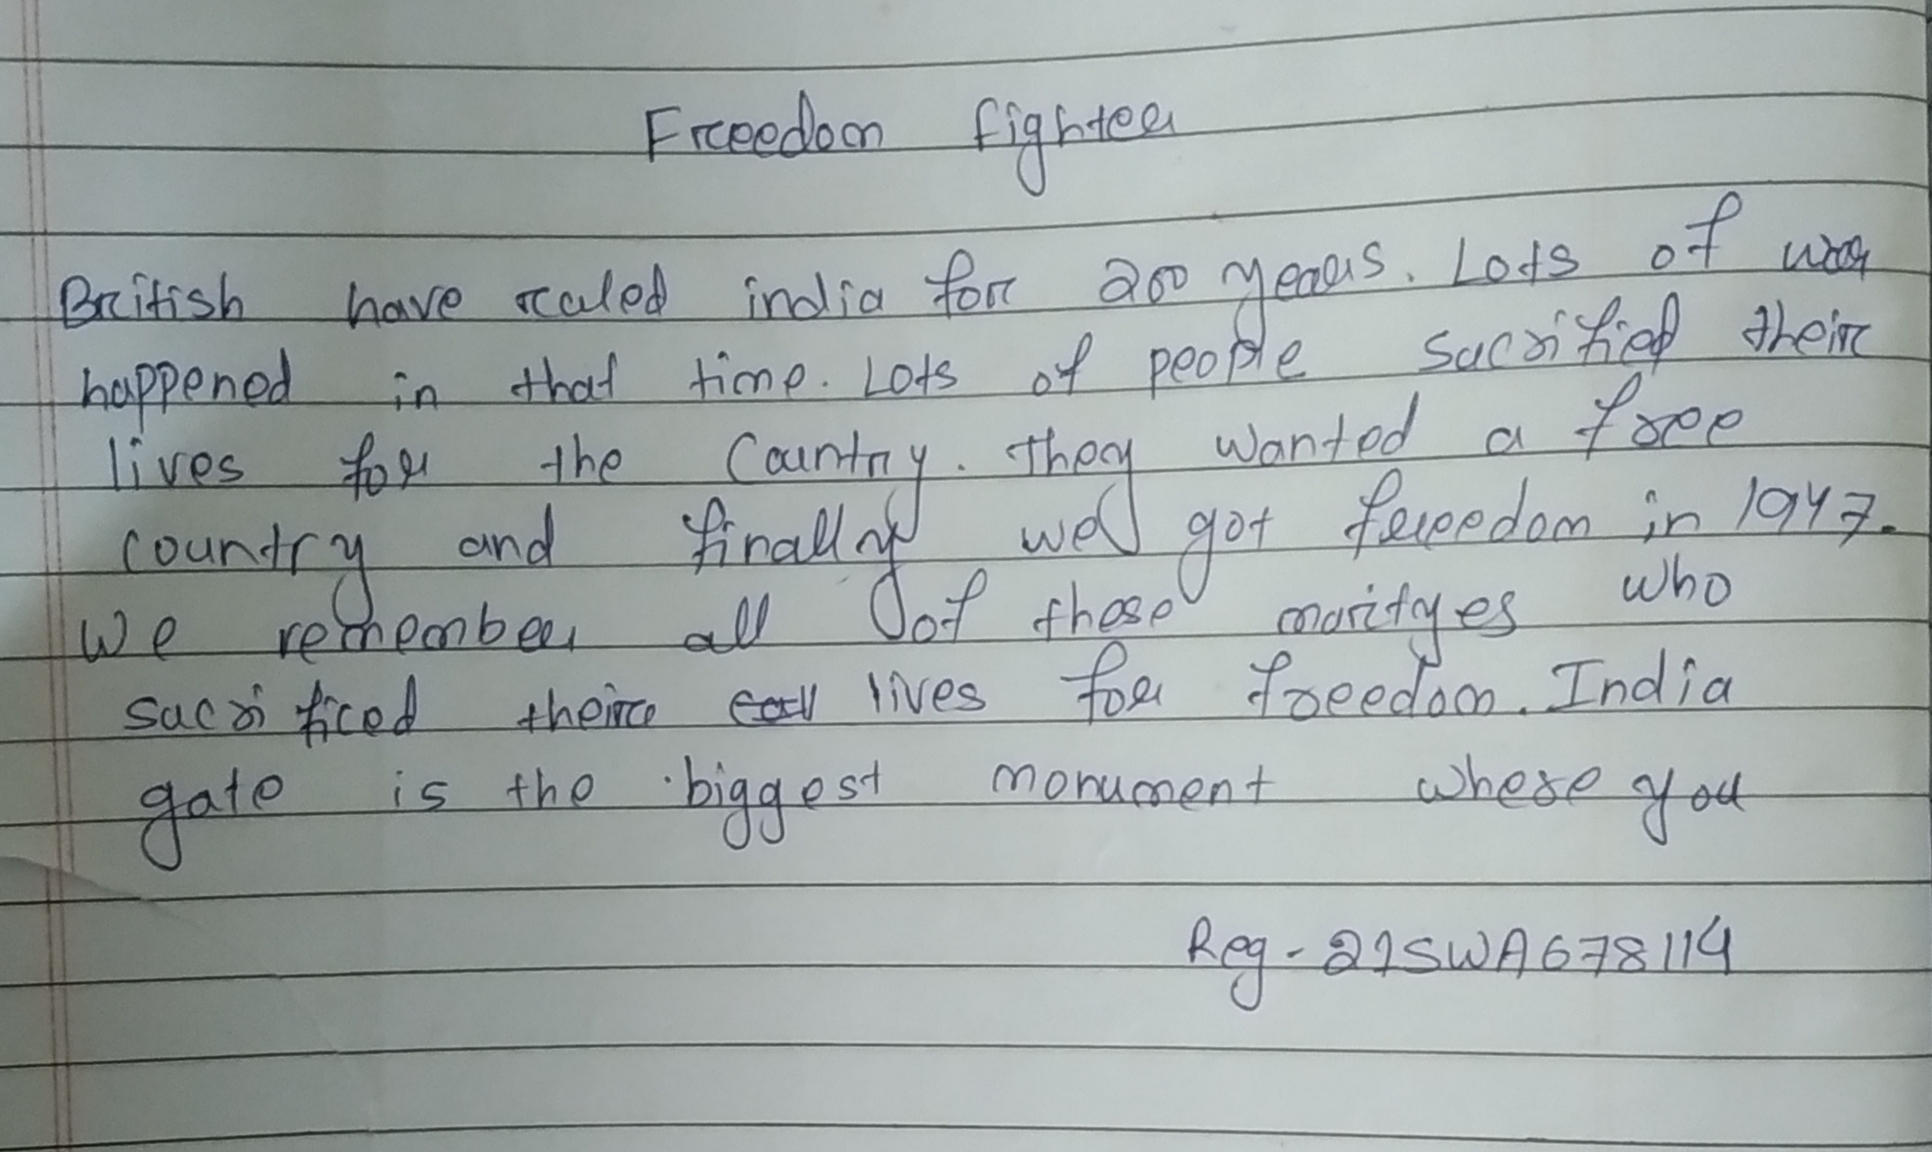 Freedom fighter
British have ruled india for 200 years. Lots of war
happened in that time. Lots of people sacrified their
lives for the Country. They wanted a free
country and finally we got freedom in 1947.
We remember all of those martyes who
sacrificed their lives for freedom. India
gate is the biggest monument where you
Reg - 21SWA678114